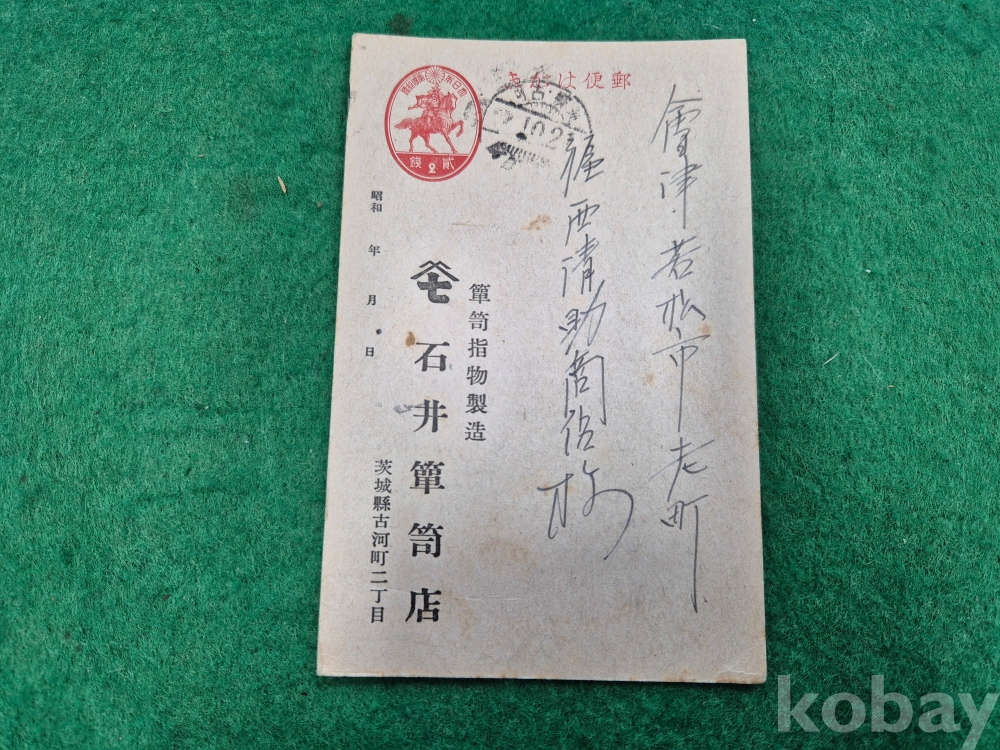 郵便はかき
會津若松市老町
堀西清助商店様
大日本帝國郵便
貳2錢
茨城・古河
10.2
箪笥指物製造
石井箪笥店
茨城縣古河町二丁目
昭和 年 月 日
kobay